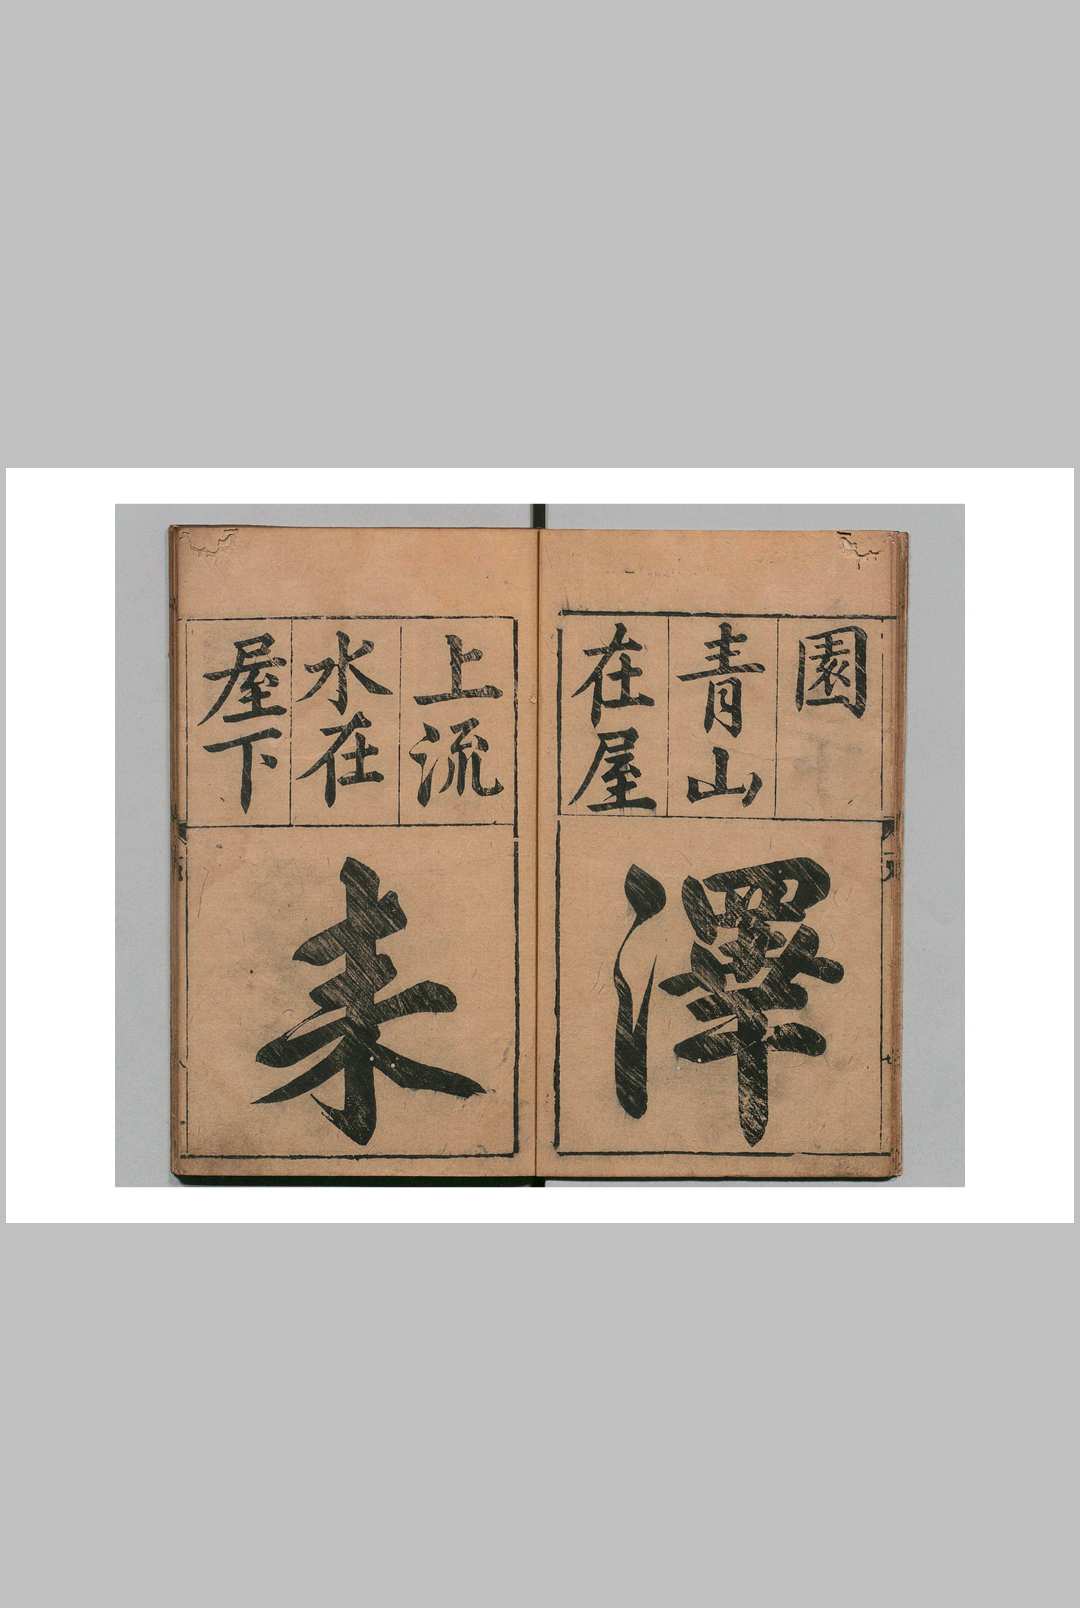 園
青山
在屋
澤
上流
水在
屋下
來